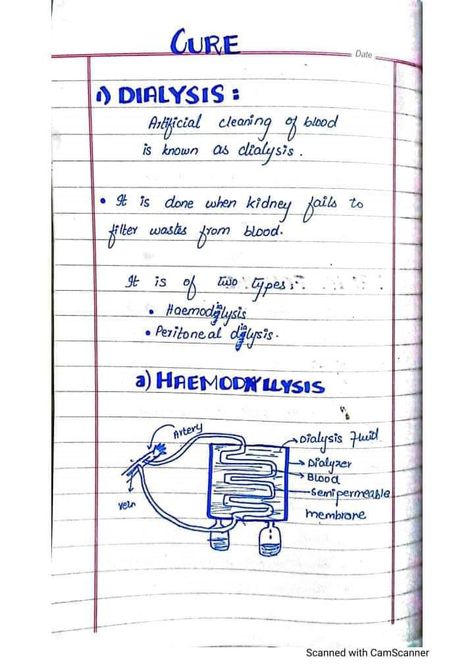 CURE
Date
1) DIALYSIS :
Artificial cleaning of blood
is known as dialysis.
• It is done when kidney fails to
filter wastes from blood.
It is of two types:
• Haemodialysis
• Peritoneal dialysis.
a) HAEMODIALYSIS
Artery
Dialysis Fluid
Dialyzer
Blood
Semipermeable
membrane
Vein
Scanned with CamScanner